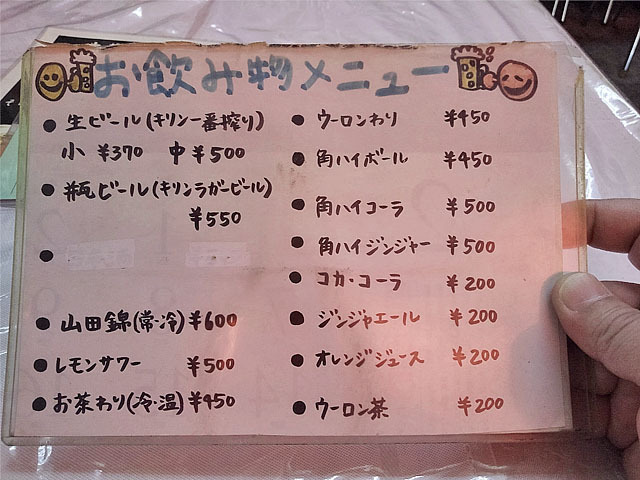 お飲み物メニュー
● 生ビール(キリン一番搾り)
小 ¥370 中 ¥500
● 瓶ビール(キリンラガービール)
¥550
●
● 山田錦(常・冷) ¥600
● レモンサワー ¥500
● お茶わり(冷・温) ¥450
● ウーロンわり ¥450
● 角ハイボール ¥450
● 角ハイコーラ ¥500
● 角ハイジンジャー ¥500
● コカ・コーラ ¥200
● ジンジャエール ¥200
● オレンジジュース ¥200
● ウーロン茶 ¥200